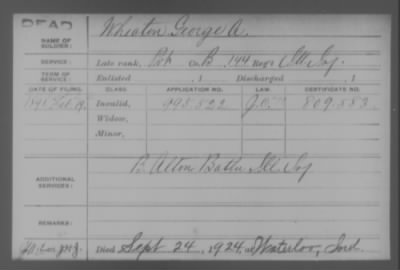 DEAD
NAME OF SOLDIER: Wheaton, George A.
SERVICE: Late rank, Pvt Co. B, 144 Reg't Ill Inf
TERM OF SERVICE: Enlisted , 1 Discharged , 1
DATE OF FILING. CLASS APPLICATION NO. LAW CERTIFICATE NO.
Invalid, 998.522 809.583
Widow,
Minor,
ADDITIONAL SERVICES: B. Alton Batln Ill Inf
REMARKS:
Died Sept 24, 1924, at Waterloo, Ind.